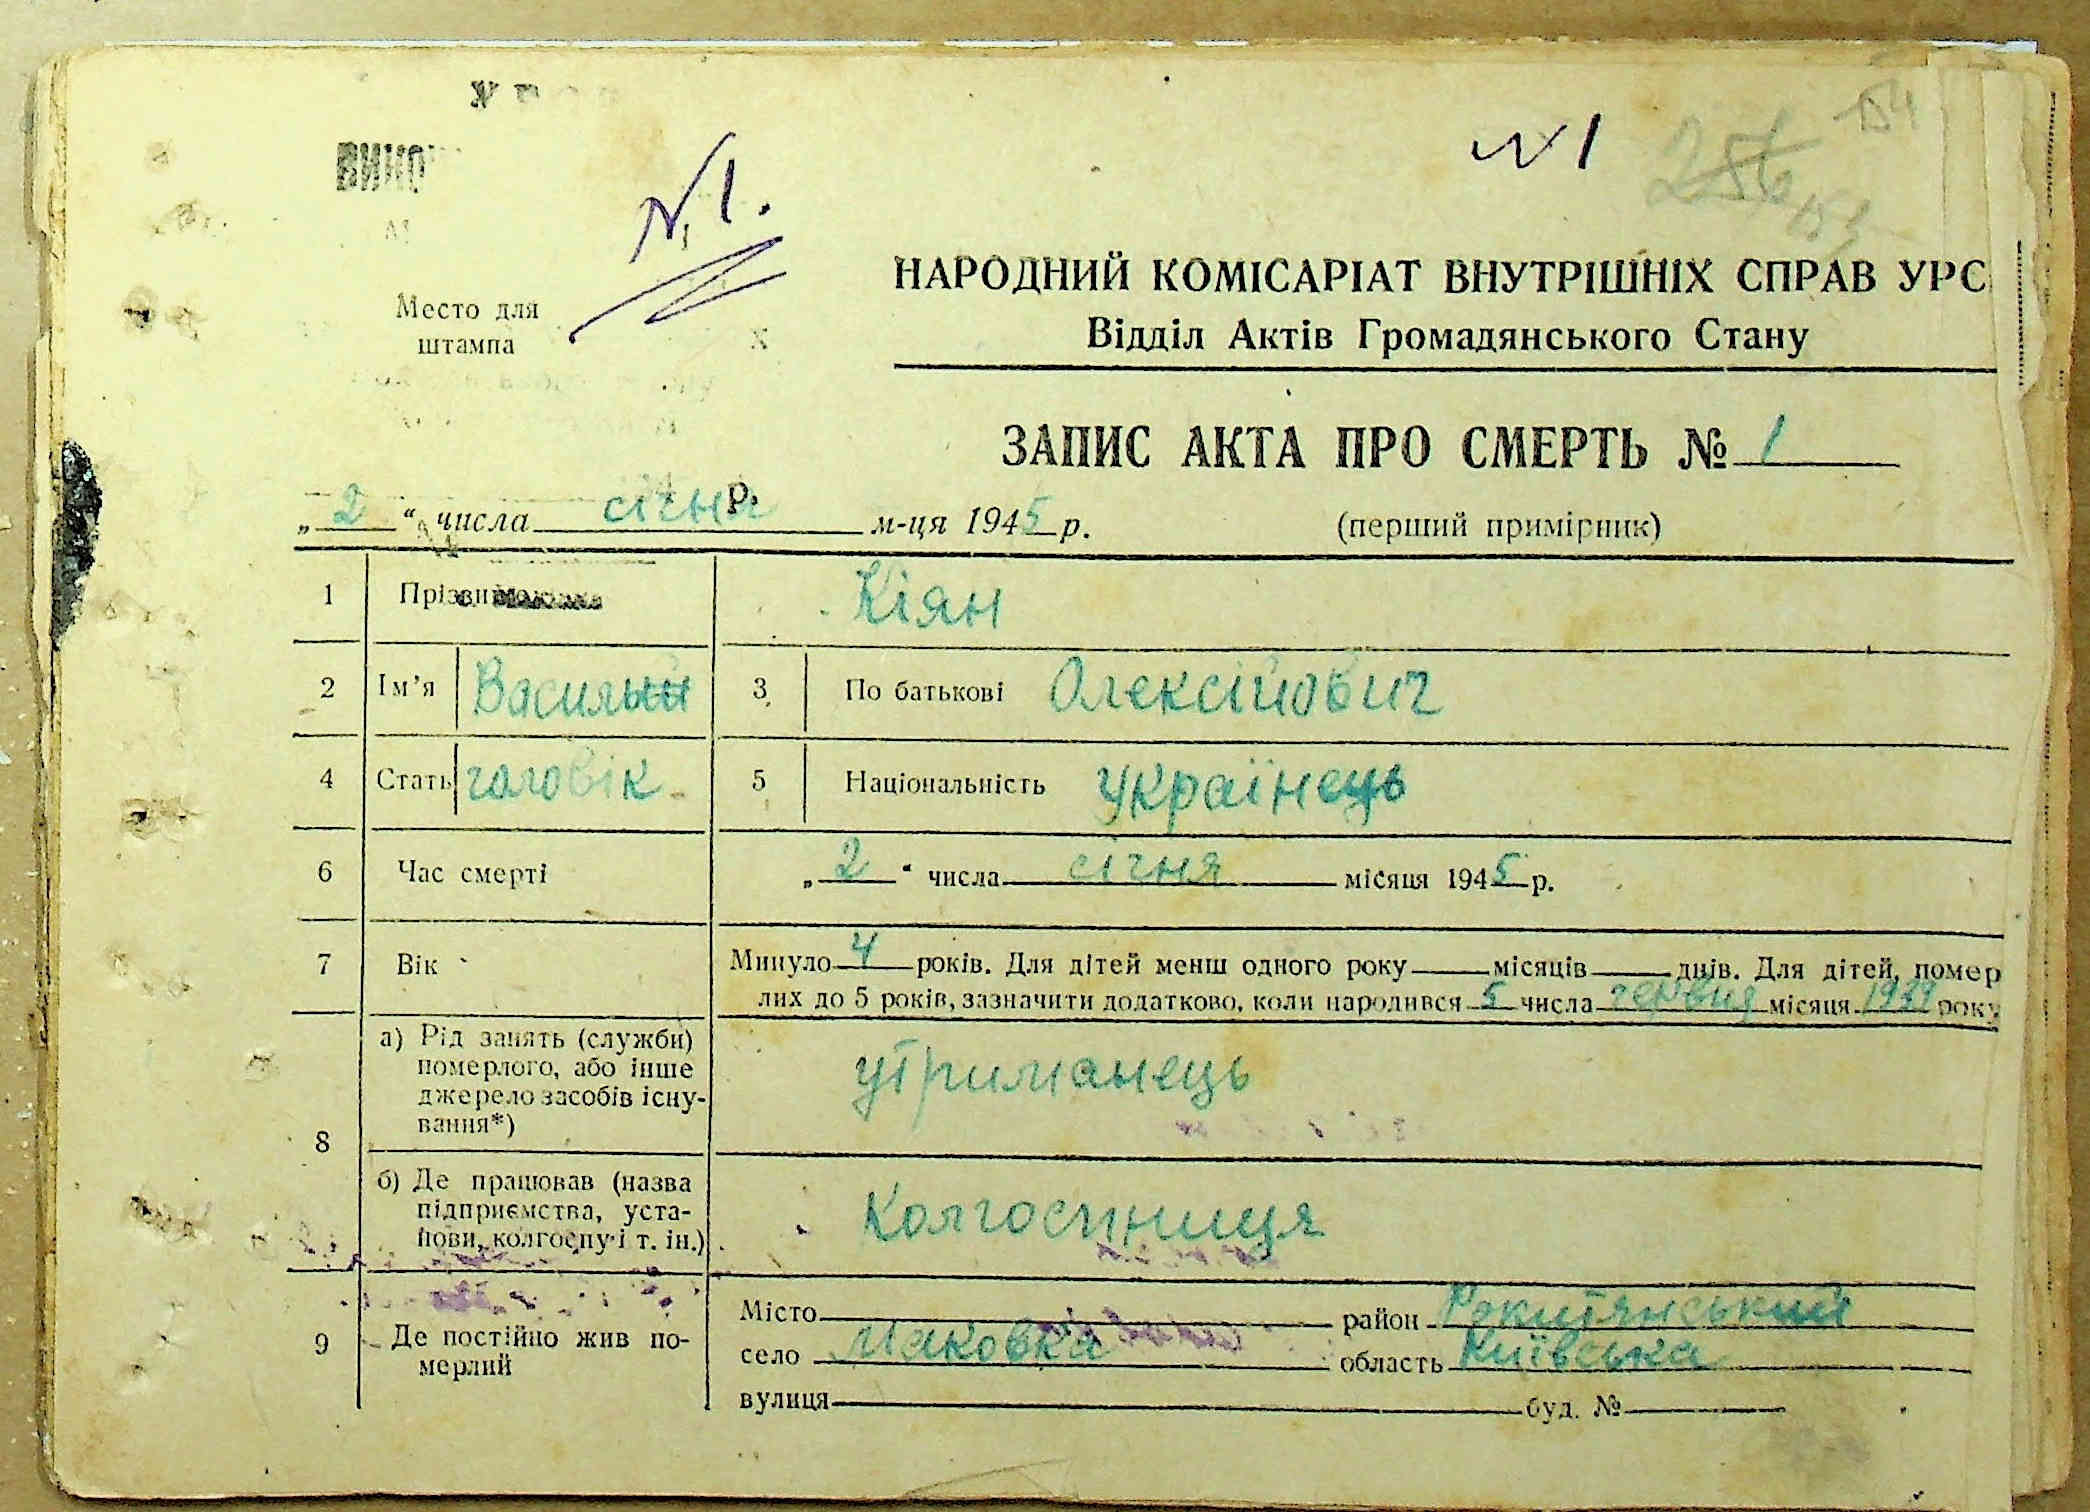 154
№ 1
256
153
№ 1.
НАРОДНИЙ КОМІСАРІАТ ВНУТРІШНІХ СПРАВ УРС
Відділ Актів Громадянського Стану
Место для
штампа
ЗАПИС АКТА ПРО СМЕРТЬ № 1
„ 2 “ числа січня м-ця 1945 р.
(перший примірник)
1 Прізвище Кіян
2 Ім’я Василь 3 По батькові Олексійович
4 Стать чоловік 5 Національність українець
6 Час смерті „ 2 “ числа січня місяця 1945 р.
7 Вік Минуло 4 років. Для дітей менш одного року місяців днів. Для дітей, помер
лих до 5 років, зазначити додатково, коли народився 5 числа червня місяця 1939 року
8 а) Рід занять (служби)
померлого, або інше
джерело засобів існу-
вання*)
утриманець
б) Де працював (назва
підприємства, уста-
нови, колгоспу і т. ін.)
Колгоспниця
9 Де постійно жив по-
мерлий
Місто район Рокитянський
село Маковка область Київська
вулиця буд. №